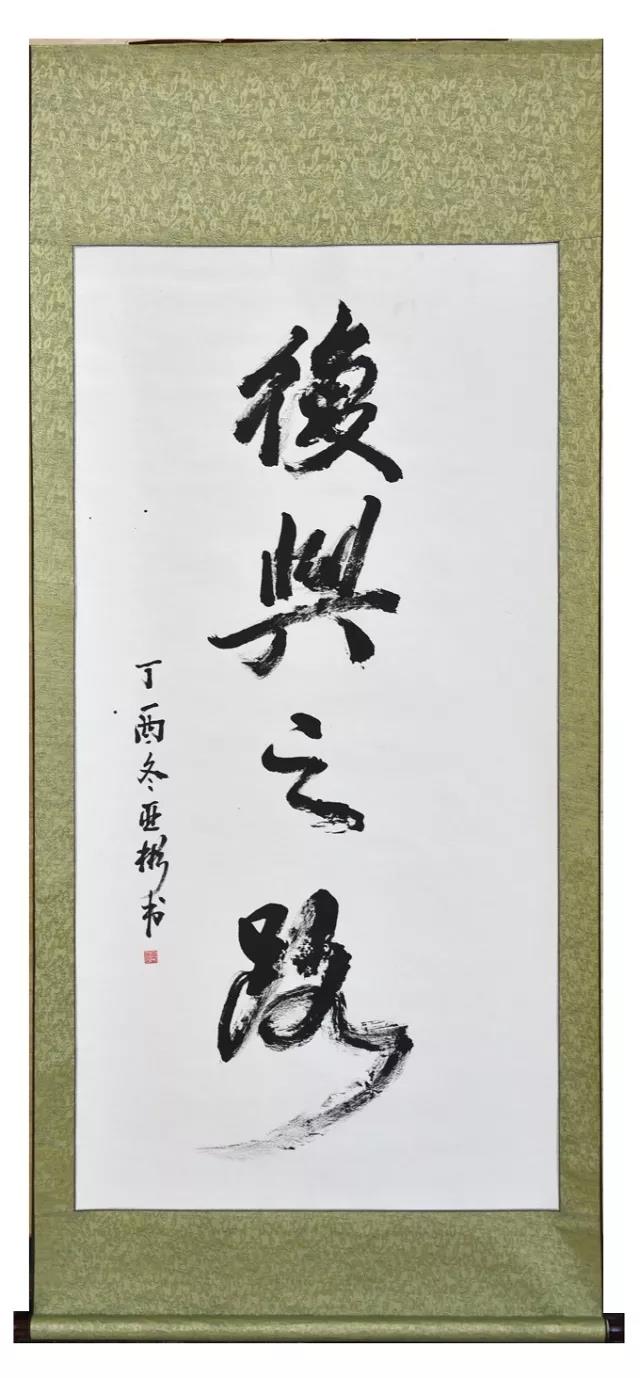 復興之路
丁酉冬亚彬书